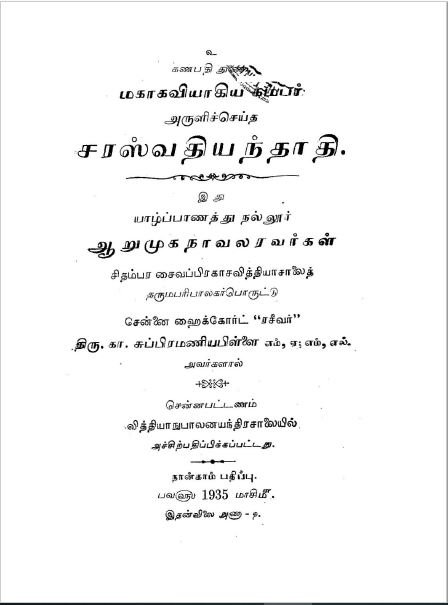 உ
கணபதி துணை
மகாகவியாகிய கம்பர்
அருளிச்செய்த
சரஸ்வதியந்தாதி.
இது
யாழ்ப்பாணத்து நல்லூர்
ஆறுமுகநாவலரவர்கள்
சிதம்பர சைவப்பிரகாசவித்தியாசாலைத்
தருமபரிபாலகர்பொருட்டு
சென்னை ஹைக்கோர்ட் “ரசீவர்”
திரு. கா. சுப்பிரமணியபிள்ளை எம், ஏ; எம், எல்.
அவர்களால்
சென்னபட்டணம்
வித்தியாநுபாலனயந்திரசாலையில்
அச்சிற்பதிப்பிக்கப்பட்டது.
நான்காம் பதிப்பு.
யுவ௵ 1935 மாசி௴.
இதன்விலை அணா - உ.